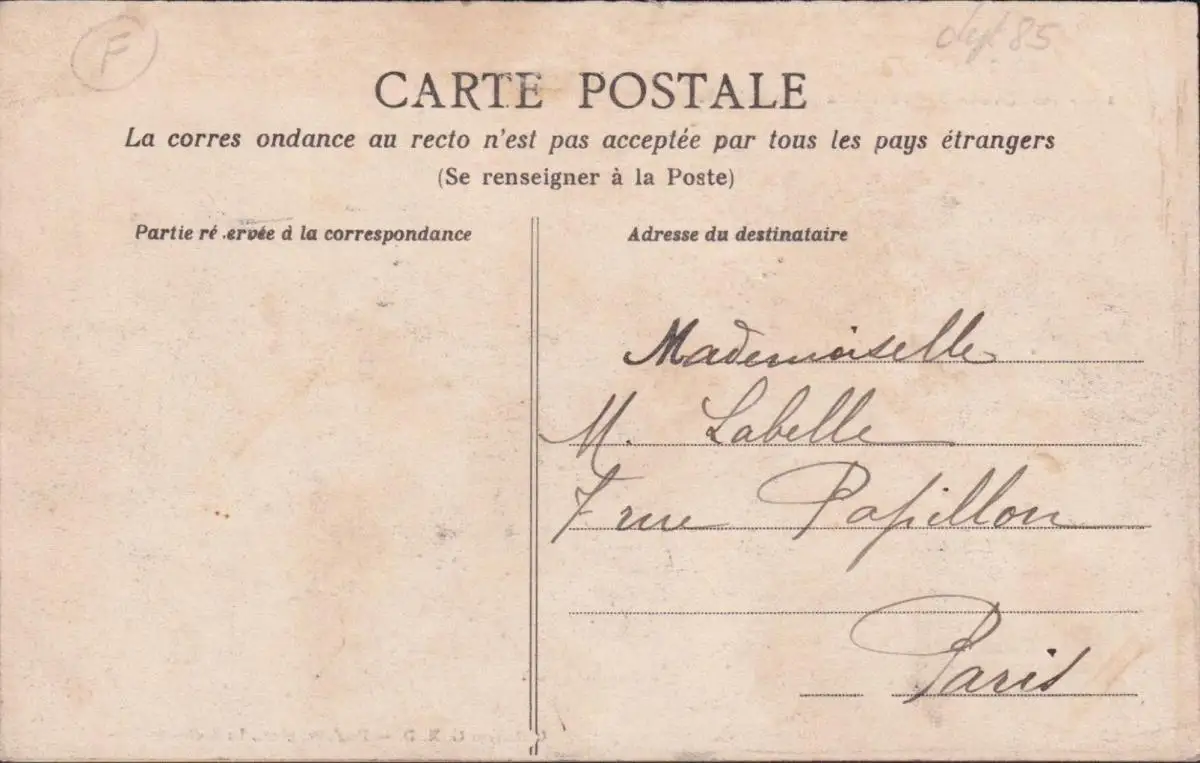 F
dept 85
CARTE POSTALE
La corres ondance au recto n'est pas acceptée par tous les pays étrangers
(Se renseigner à la Poste)
Partie ré ervée à la correspondance
Adresse du destinataire
Mademoiselle
M. Labelle
7 rue Papillon
Paris